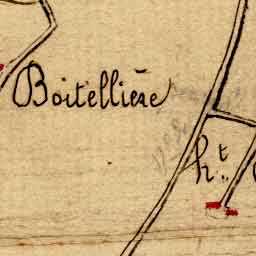 Boitellière
h.t